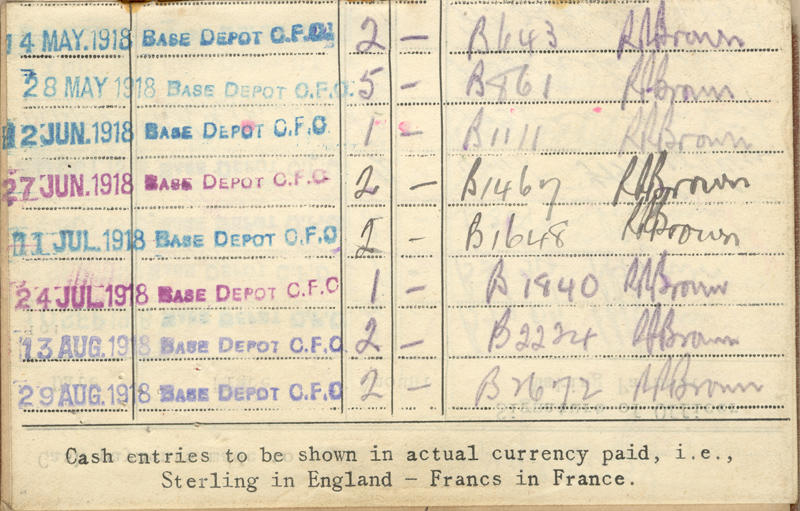 14 MAY.1918 BASE DEPOT C.F.C. 2 — B643 RABrown
28 MAY 1918 BASE DEPOT C.F.C. 5 — B861 RABrown
12 JUN.1918 BASE DEPOT C.F.C 1 — B1111 RABrown
27 JUN.1918 BASE DEPOT C.F.C 2 — B1467 RABrown
11 JUL.1918 BASE DEPOT C.F.C 2 — B1648 RABrown
24 JUL.1918 BASE DEPOT C.F.C 1 — B1840 RABrown
13 AUG.1918 BASE DEPOT C.F.C. 2 — B2224 RABrown
29 AUG.1918 BASE DEPOT C.F.C 2 — B2672 RABrown
Cash entries to be shown in actual currency paid, i.e.,
Sterling in England — Francs in France.